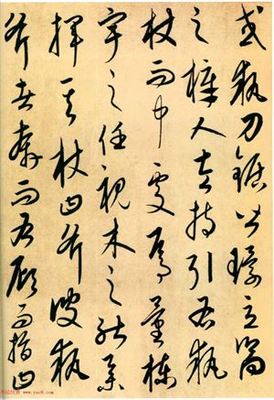 或執刀鋸皆環立嚮
之梓人左持引右執
杖而中處焉量棟
宇之任視木之能舉
揮其杖曰斧彼執
斧者奔而右顧而指曰